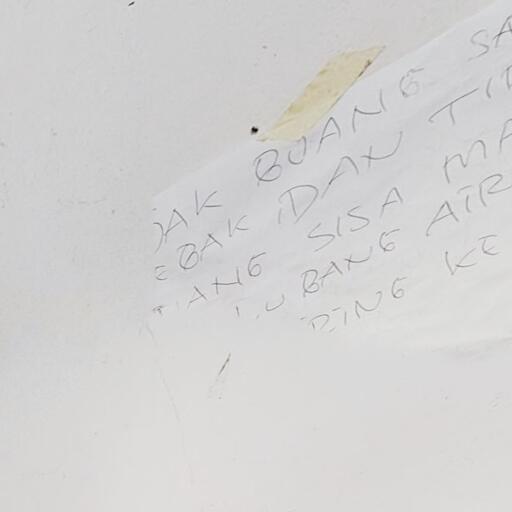 DAK BUANG SA
EBAK DAN TID
ANG SISA MA
LUBANG AIR
RING KE